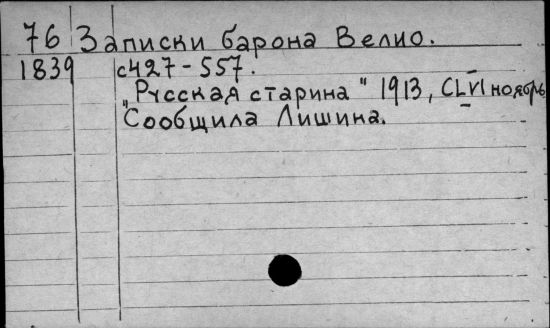 76 Записки барона Велио.
1839 с427-557.
„Русская старина" 1913, CLVI ноябрь
Сообщила Лишина.